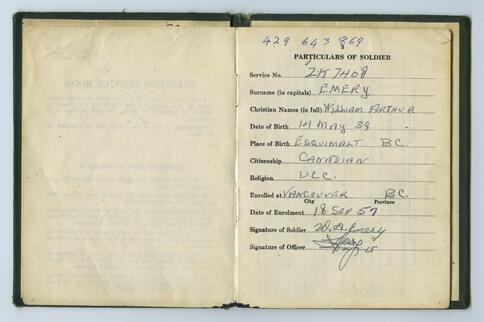 429 643 869
PARTICULARS OF SOLDIER
Service No. ZK 7408
Surname (in capitals) EMERY
Christian Names (in full) WILLIAM ARTHUR
Date of Birth 14 MAY 39
Place of Birth ESQUIMALT BC.
Citizenship CANADIAN.
Religion UCC.
Enrolled at VANCOUVER BC.
City Province
Date of Enrolment 18 SEP 57
Signature of Soldier W. A. Emery
Signature of Officer